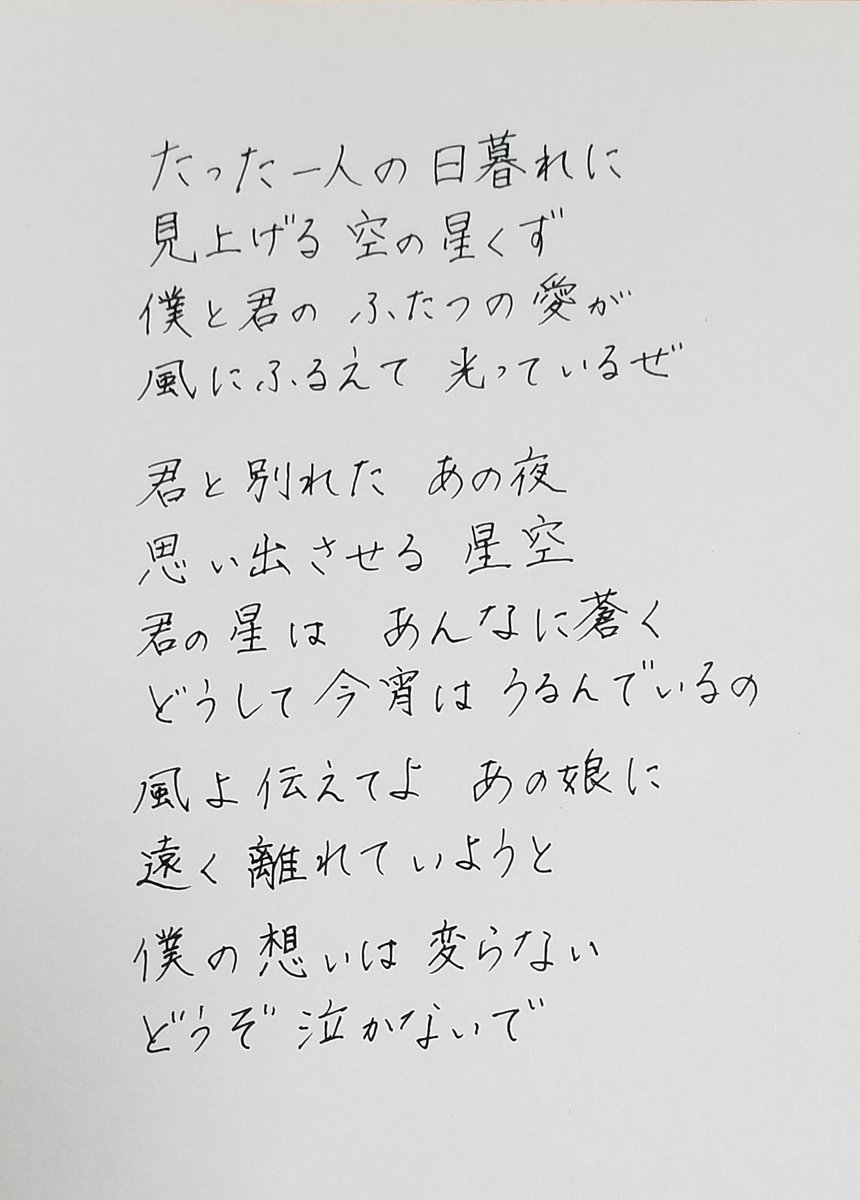 たった一人の 日暮れに
見上げる 空の星くず
僕と君の ふたつの愛が
風にふるえて 光っているぜ
君と別れた あの夜
思い出させる 星空
君の星は あんなに蒼く
どうして今宵は うるんでいるの
風よ伝えてよ あの娘に
遠く離れていようと
僕の想いは 変らない
どうぞ 泣かないで